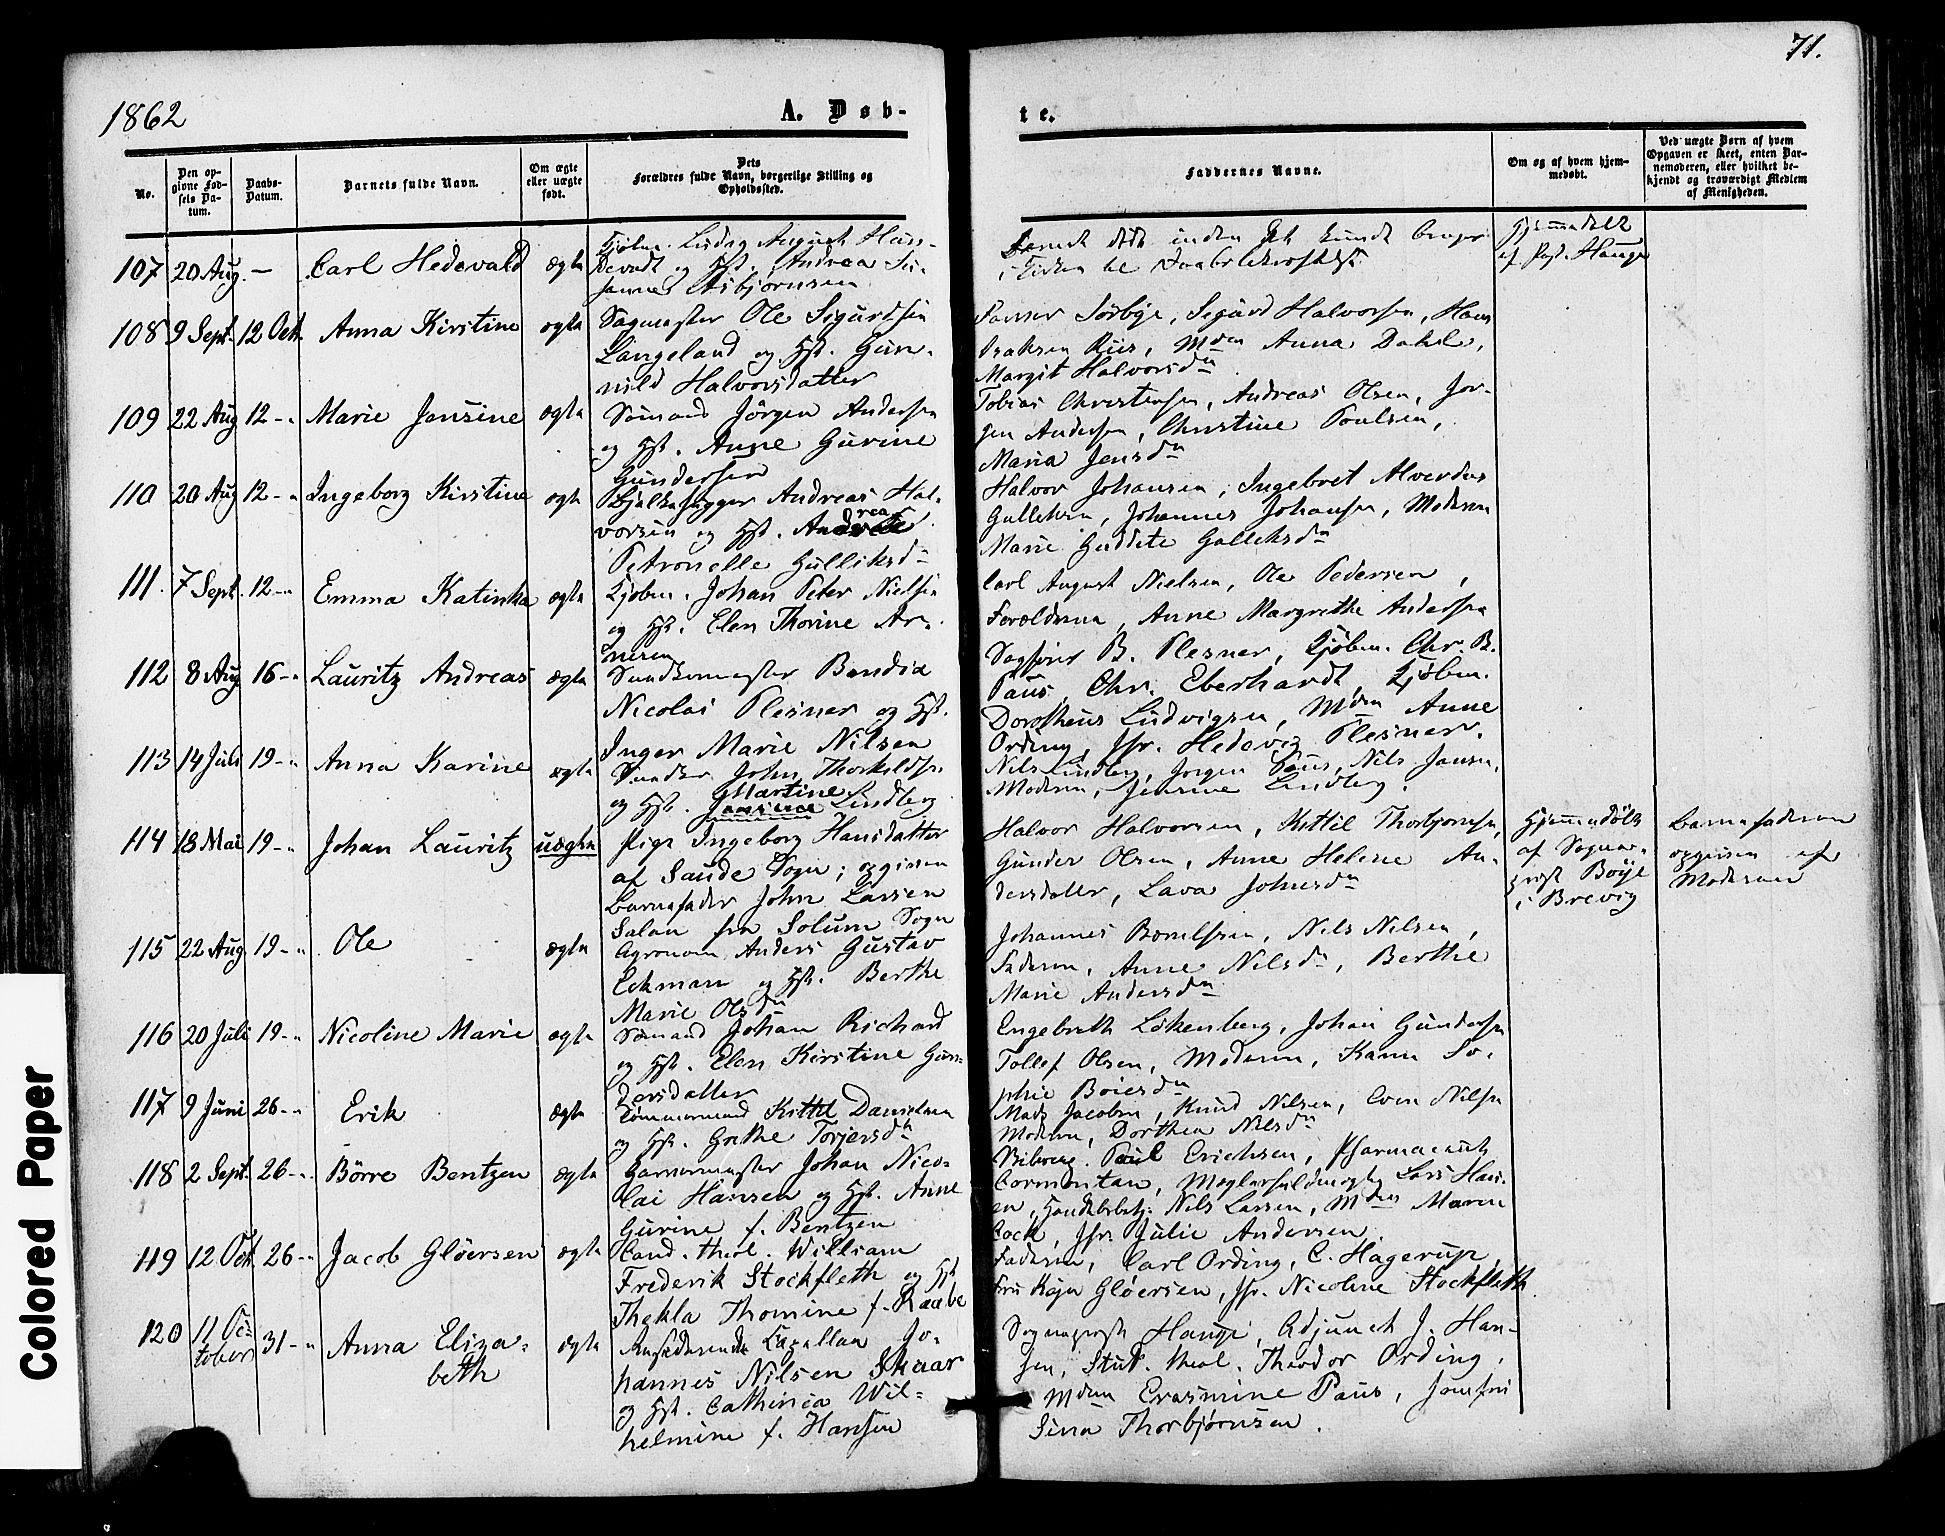 71.
1862
A. Døb-
te.
No.
Den opgivne Fødsels Datum.
Daabs-Datum.
Barnets fulde Navn.
Om ægte eller uægte født.
Dets Forældres fulde Navn, borgerlige Stilling og Opholdssted.
Faddernes Navne.
Om og af hvem hjemmedøbt.
Ved uægte Børn af hvem Opgaven er skeet, enten Barnemoderen, eller hvilket bekjendt og troværdigt Medlem af Menigheden.
107 20 Aug. — Carl Hedevald ægte
Kjøbm. Ludvig August
og Hst. Andrea Su-
sanne Esbjørnsen
Barnet døde inden det kunde bringes
i Kirken
Hjemmedøbt
af Prst. Hauge
108 9 Sept. 12 Oct. Anna Kirstine ægte
Sagmester Ole Sigurdsen
Langeland og Hst. Gun-
nild Halvorsdatter
Sörbye, Sigurd Halvorsen, Hans
Isaksen Riis, Mdm Anna Dahl,
Margit Halvorsdn
109 22 Aug 12 -" Marie Jensine ægte
Sömand Jörgen Andersen
og Hst. Anne Gurine
Gundersen
Tobias Christensen, Andreas Olsen, Jör-
gen Andersen, Christine Poulsen,
Maria Jensdn
110 20 Aug 12 -" Ingeborg Kirstine ægte
Bjelkehugger Andreas Hal-
vorsen og Hst. Andrea
Petronelle Gulliksd-
Halvor Johansen, Ingebret
Gulleksen, Johannes Johansen, Moderen
Marie Galleksdn
111. 7 Sept. 12 -" Emma Katinka ægte
Kjøbm. Johan Peter Nielsen
og Hst. Elen Thorine Ar-
nesen
Carl August Nielsen, Ole Pedersen,
Forældrene, Anne Margrethe Andersen
112 8 Aug 16 -" Lauritz Andreas ægte
Bendix
Nicolai Plesner og Hst.
Inger Marie Nilsen
Sagfører B. Plesner, Kjøbm. Chr. B.
Paus, Chr. Eberhardt, Kjøbm.
Dorotheus Ludvigsen, Mdm Anne
Ording, Jfr. Hedevig Plesner.
113 14 Juli 19 -" Anna Karine ægte
John Thorkildsen
og Hst. Martine Lindberg
Nils Lindberg, Jørgen Paus, Nils Jansen,
Moderen, Jensine Lindberg.
114 18 Mai 19 -" Johan Lauritz uægte
Pige Ingeborg Hansdatter
af Saude Sogn; opgiven
Barnefader John Larsen
Salan fra Solum Sogn
Halvor Halvorsen, Kittil Thorbjornsen,
Gunder Olsen, Anne Helene An-
dersdatter, Lava Johnsdn
Hjemmedøbt
af Sogne-
prest Böije
i Brevig
Barnefaderen
opgiven af
Moderen
115 22 Aug. 19 -" Ole ægte
Agronom Anders Gustav
Eckmann og Hst. Berthe
Marie Olsdn
Johannes Nils Nilsen,
Faderen, Anne Nilsdn, Berthe
Marie Andersdn
116 20 Juli 19 -" Nicoline Marie ægte
Sömand Johan Richard
og Hst. Elen Kirstine Gun-
dersdatter
Engebreth Lökenberg, Johan Gundersen
Tollef Olsen, Moderen, Karen So-
phie Boiesdn
117 9 Juni 26 -" Erik ægte
Tömmermand Kittil Danielsen
og Hst. Grethe Torjersdn
Mads Jacobsen, Knud Nilsen, Even Nilsen
Moderen, Dorthea Nilsdn
118 2 Sept. 26 -" Börre Bentzen ægte
Garvermester Johan Nico-
lai Hansen og Hst. Anne
Gurine f. Bentzen
Poul Erichsen, Pharmaceut
Cormontan, Mæglerfuldmægtig Lars Han-
sen, Handelsbetj. Nils Larsen, Mdm Maren
Cock, Jfr. Julie Andersen.
119 12 Oct 26 -" Jacob Gløersen ægte
Cand. theol. William
Frederik Stockfleth og Hst
Thekla Thomine f. Raabe
Faderen, Carl Ording, C. Hagerup,
Fru Kaja Gløersen, Jfr. Nicoline Stockfleth.
120 11 Oc-
tober 31 -" Anna Eliza-
beth ægte
Residerende Kapellan Jo-
hannes Nilsen Skaar
og Hst. Cathinca Wil-
helmine f. Hansen
Sogneprest Hauge, Adjunct J. Han-
sen, Stud. theol. Theodor Ording,
Mdm Erasmine Paus, Jomfru
Sina Thorbjørnsen.
Colored Paper